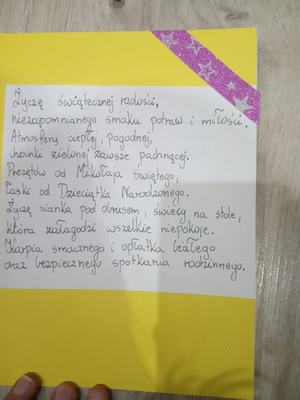 Życzę świątecznej radości,
niezapomnianego smaku potraw i miłości.
Atmosfery ciepłej, pogodnej,
choinki zielonej zawsze pachnącej.
Prezetów od Mikołaja Świętego,
Łaski od Dzieciątka Narodzonego.
Życzę sianka pod obrusem, świecy na stole,
która załagodzi wszelkie niepokoje.
Karpia smacznego i opłatka białego
oraz bezpiecznego spotkania rodzinnego.